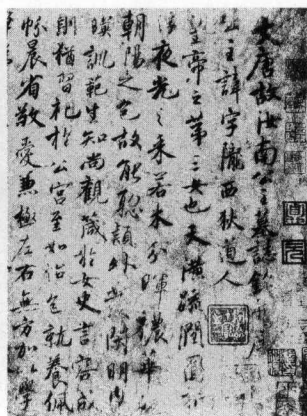 大唐故汝南公主墓誌銘并序
公主諱字隴西狄道人
皇帝之第三女也天潢疏潤圓折
浮夜光之采若木分暉穠華
朝陽之色故能聰穎外發閑明內
暎訓範生知尚觀箴於女史言容成
訓猶習礼於公宮至如怡色就養佩
帉晨省敬愛兼極左右無方加以學